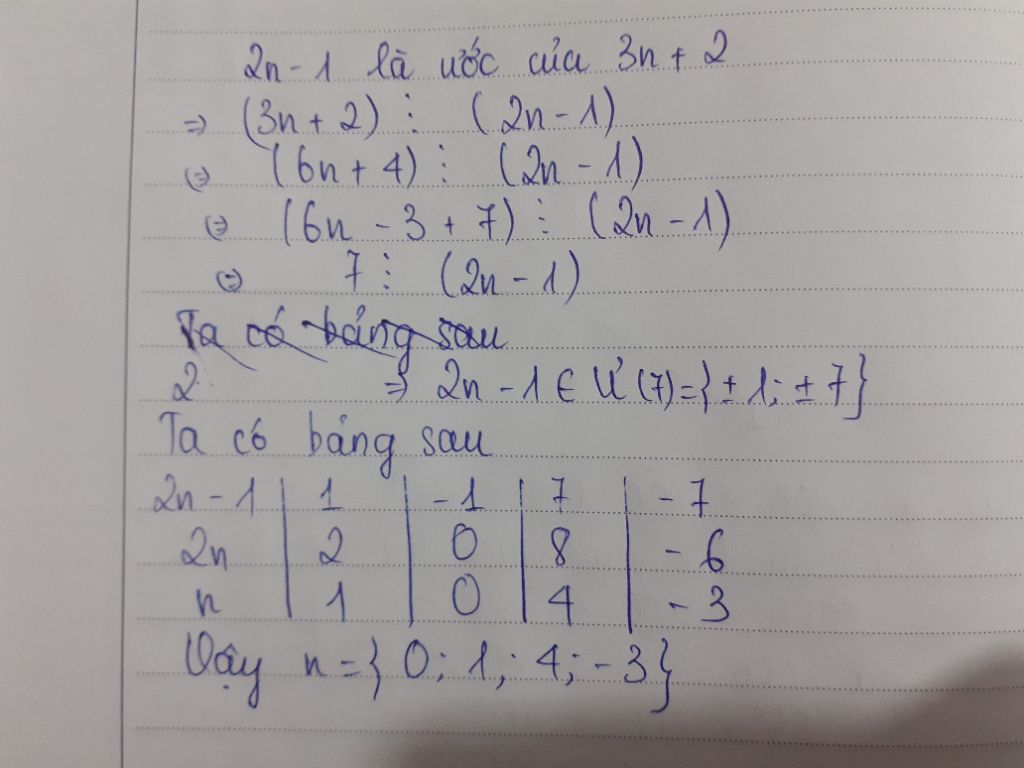 2n - 1 là ước của 3n + 2
=> (3n + 2) ⋮ (2n - 1)
(=) (6n + 4) ⋮ (2n - 1)
(=) (6n - 3 + 7) ⋮ (2n - 1)
(=) 7 ⋮ (2n - 1)
Ta có bảng sau
2 => 2n - 1 ∈ Ư(7) = {± 1; ± 7}
Ta có bảng sau
2n - 1 | 1 | - 1 | 7 | - 7
2n | 2 | 0 | 8 | - 6
n | 1 | 0 | 4 | - 3
Vậy n = { 0; 1; 4; - 3}